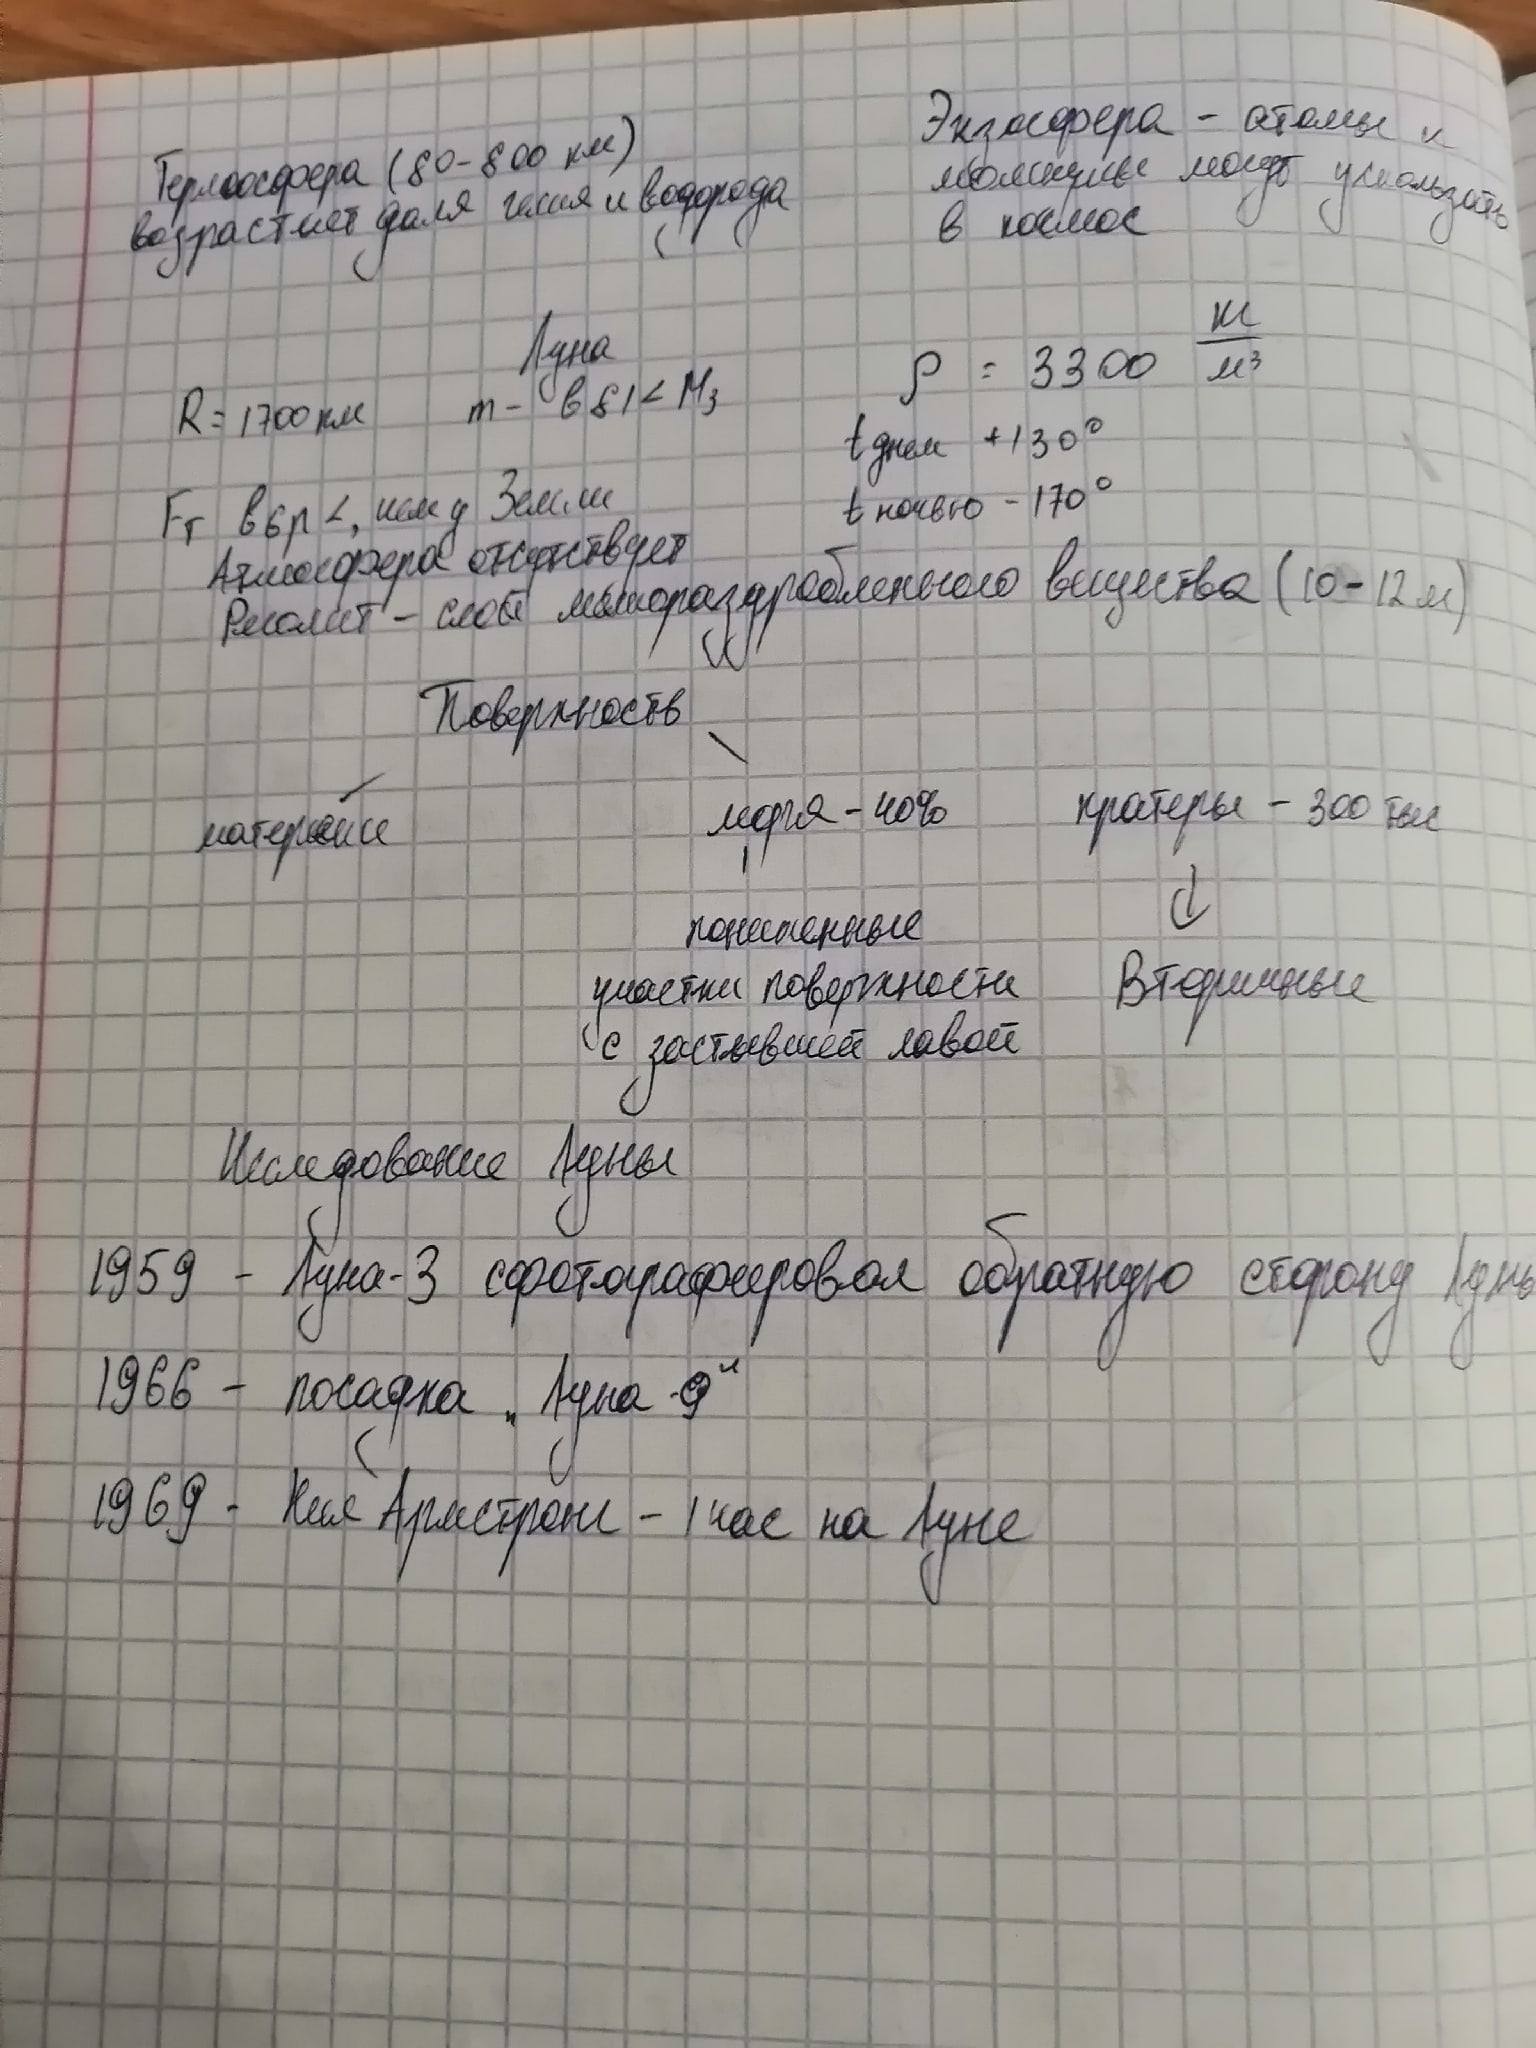 Термосфера (80-800 км)
возрастает доля гелия и водорода
Экзосфера - атомы и
молекулы могут ускользать
в космос
Луна
R = 1700 км
m - в 81 < Mз
ρ = 3300 кг/м³
t днем +130°
t ночью -170°
Fт в 6р <, чем у Земли
Атмосфера отсутствует
Реголит - слой мелкораздробленного вещества (10-12 м)
Поверхность
материки
моря - 40%
кратеры - 300 тыс
пониженные
участки поверхности
с застывшей лавой
Вторичные
Исследование Луны
1959 - Луна-3 сфотографировал обратную сторону Луны
1966 - посадка „Луна-9"
1969 - Нил Армстронг - 1 час на Луне